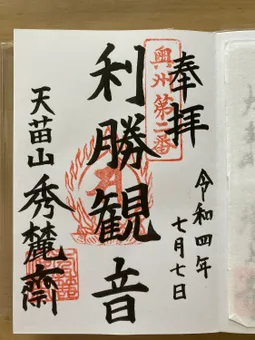 奉拝
令和四年
七月七日
奥州第二番
利勝観音
天苗山
秀麓齋